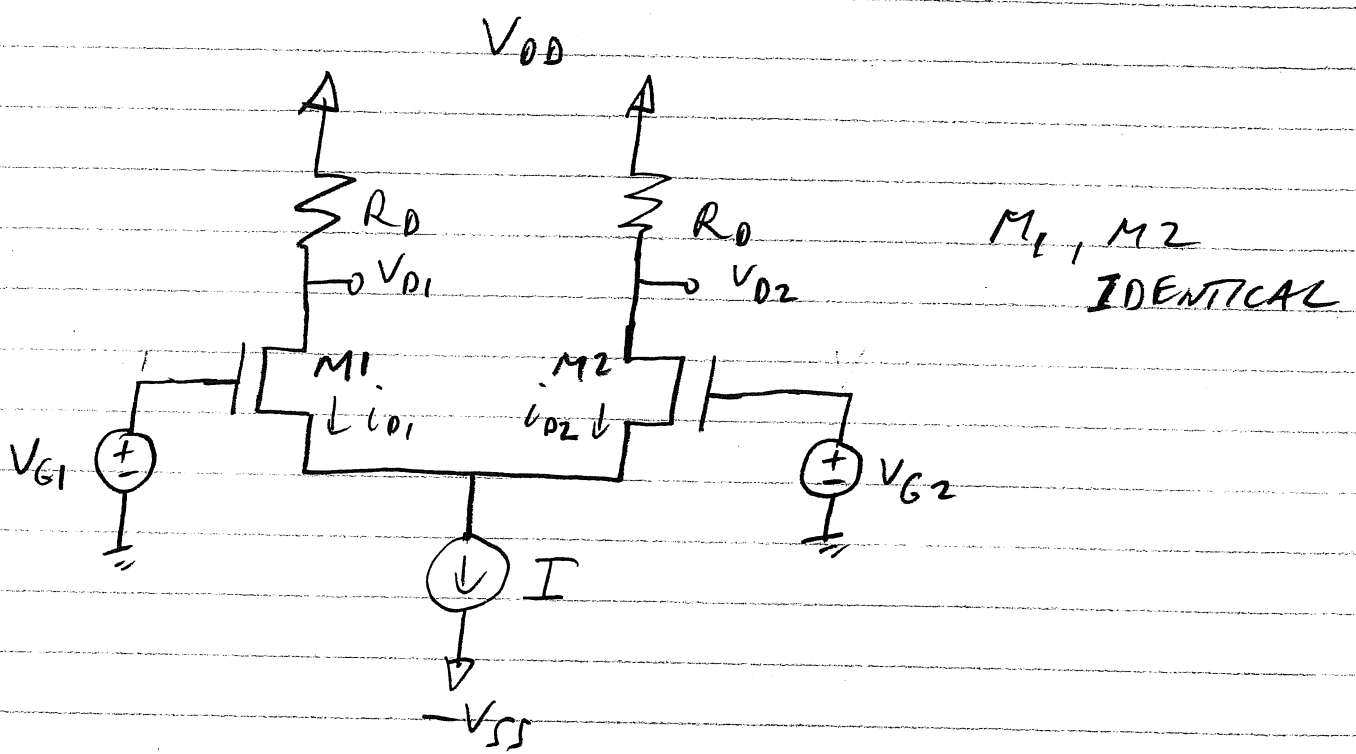 VDD
RD
RD
M1, M2
IDENTICAL
VD1
VD2
M1
M2
iD1
iD2
VG1
+
-
+
-
VG2
I
-VSS